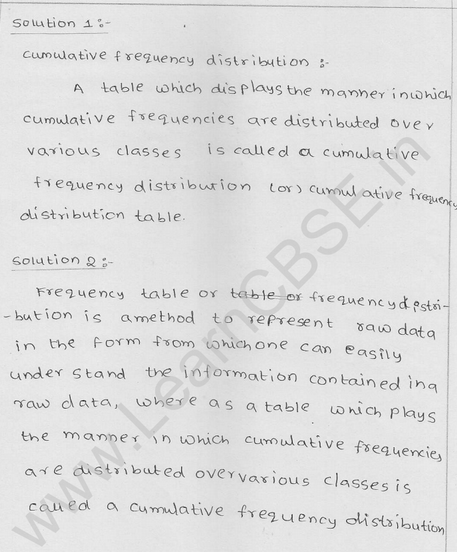 Solution 1:-
Cumulative frequency distribution :-
A table which displays the manner in which
cumulative frequencies are distributed over
various classes is called a cumulative
frequency distribution (or) cumulative frequency
distribution table.
Solution 2:-
Frequency table or table or frequency distri-
-bution is a method to represent raw data
in the form from which one can easily
under stand the information contained in a
raw data, where as a table which plays
the manner in which cumulative frequencies
are distributed over various classes is
called a cumulative frequency distribution
www.LearnCBSE.in